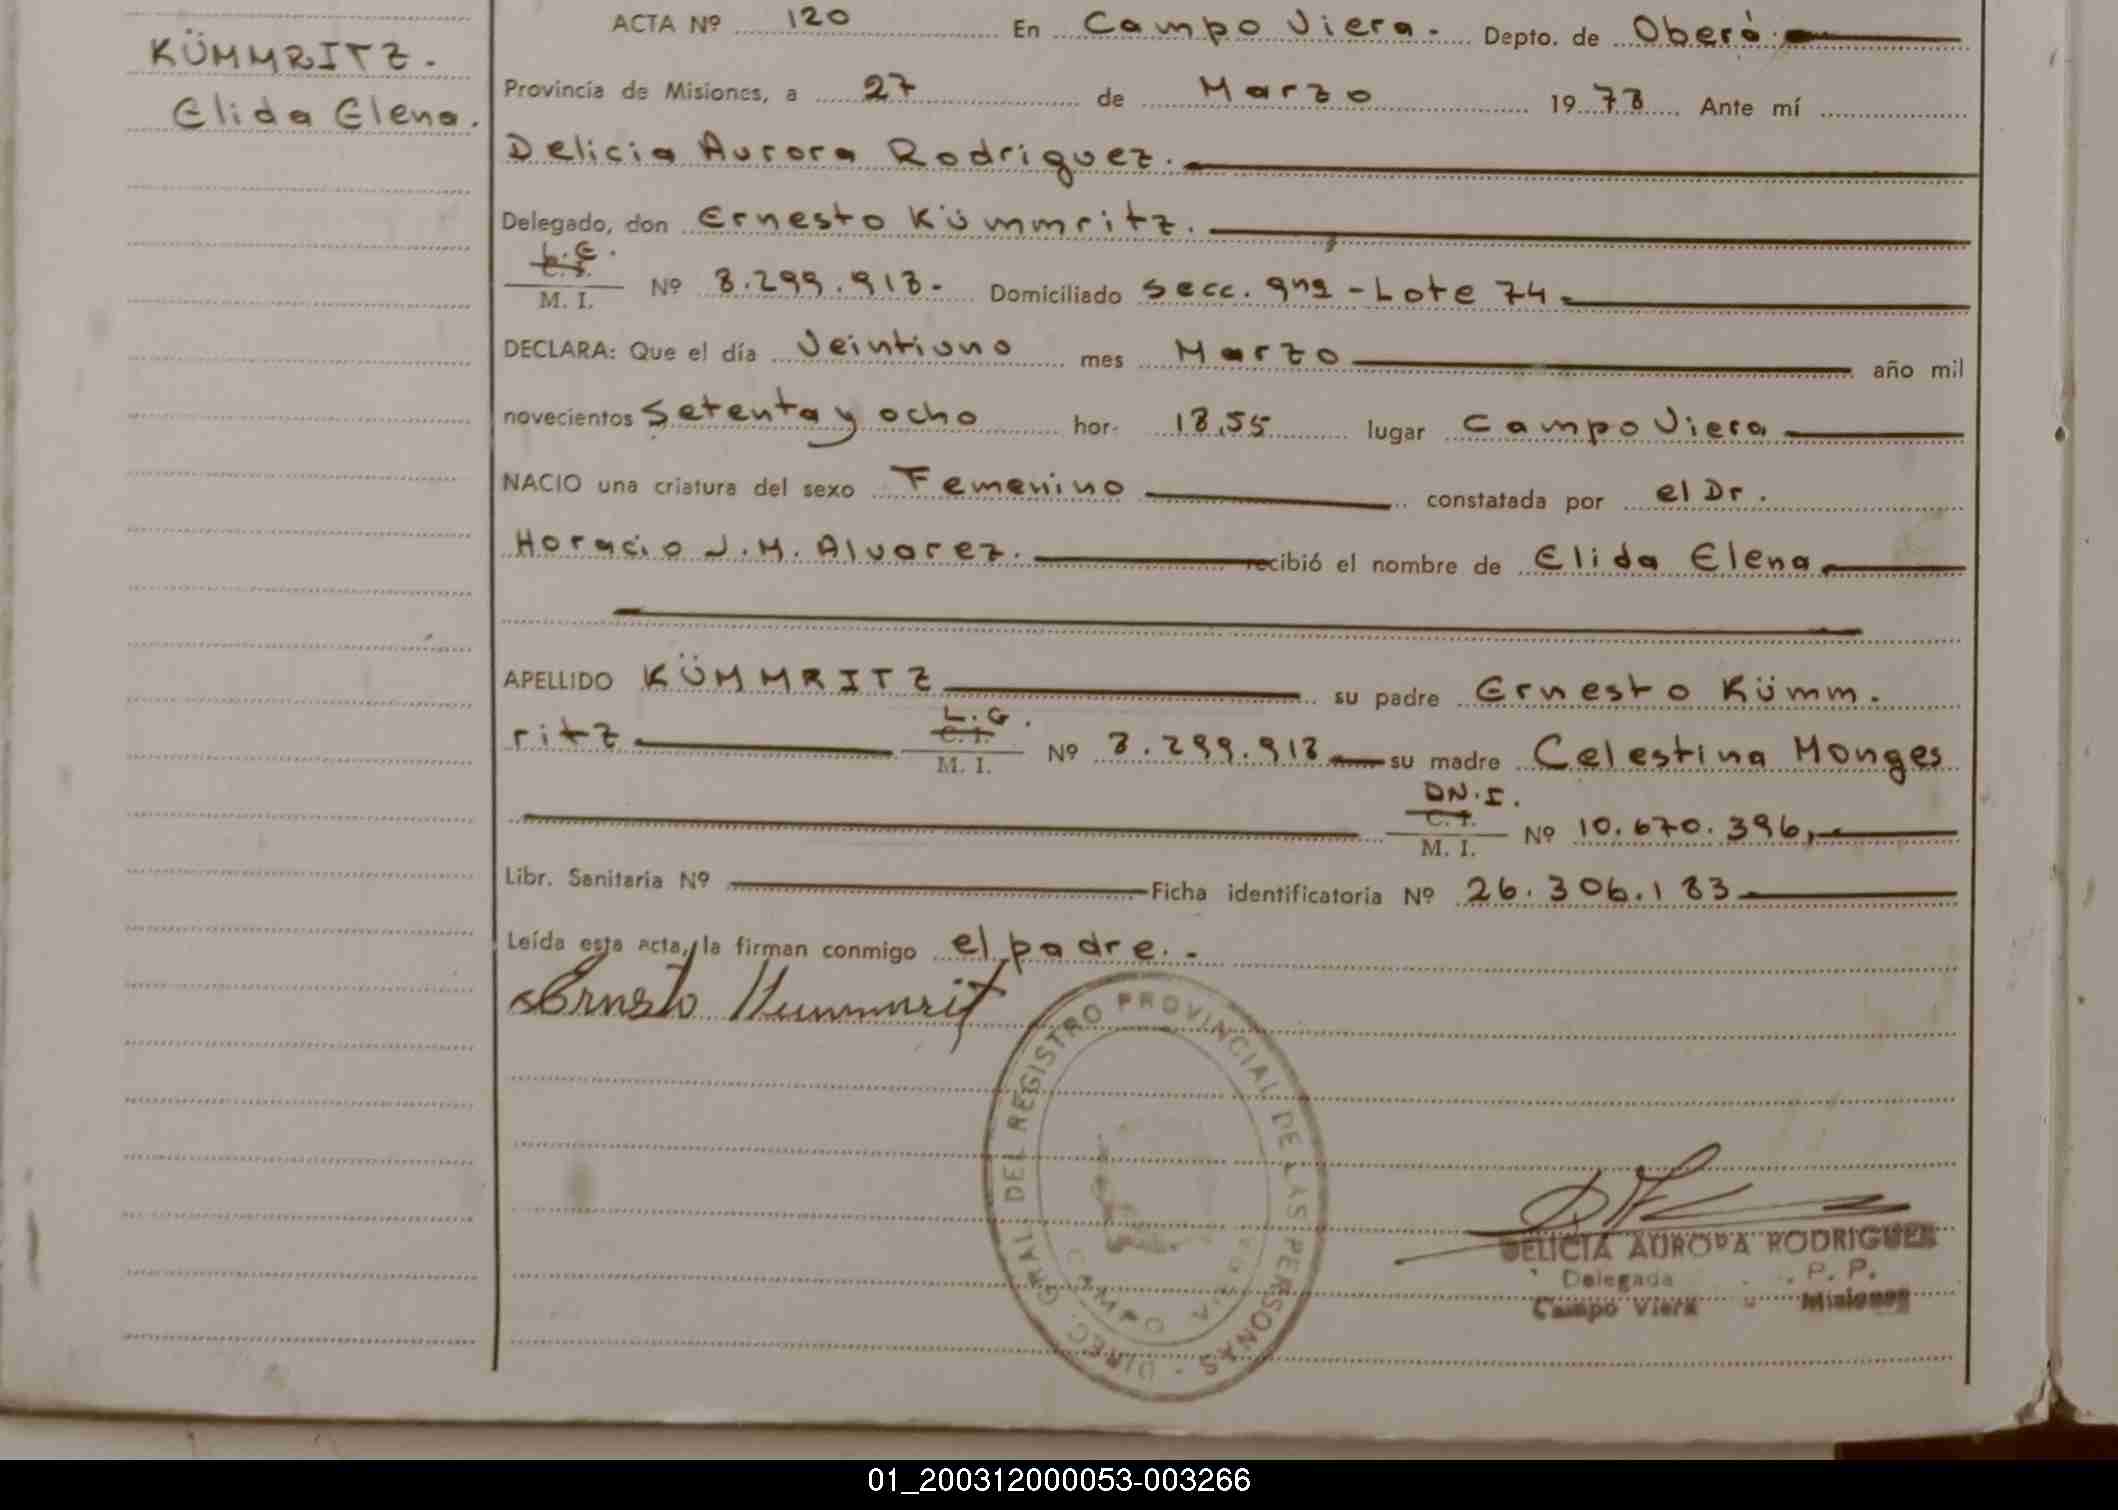 KÜMMRITZ.
Elida Elena.
ACTA Nº 120 En Campo Viera. Depto. de Oberá.
Provincia de Misiones, a 27 de Marzo 1978 Ante mí
Delicia Aurora Rodriguez.
Delegado, don Ernesto Kümmritz.
L.E.
C. I.
M. I. Nº 8.299.918. Domiciliado secc. 9na - Lote 74
DECLARA: Que el día Veintiuno mes Marzo año mil
novecientos Setenta y ocho hor. 18,55 lugar Campo Viera
NACIO una criatura del sexo Femenino constatada por el Dr.
Horacio J.M. Alvarez. recibió el nombre de Elida Elena
APELLIDO KÜMMRITZ su padre Ernesto Kümm.
L.E.
ritz C. I. Nº 8.299.918 su madre Celestina Monges
M. I.
DN.I.
C. I.
M. I. Nº 10.670.396,
Libr. Sanitaria Nº Ficha identificatoria Nº 26.306.183
Leída esta acta, la firman conmigo el padre.-
Ernesto Kummrit
DIREC. GRAL DEL REGISTRO PROVINCIAL DE LAS PERSONAS -
CAMPO
DELICIA AURORA RODRIGUEZ
Delegada P. P.
Campo Viera - Misiones
01_200312000053-003266